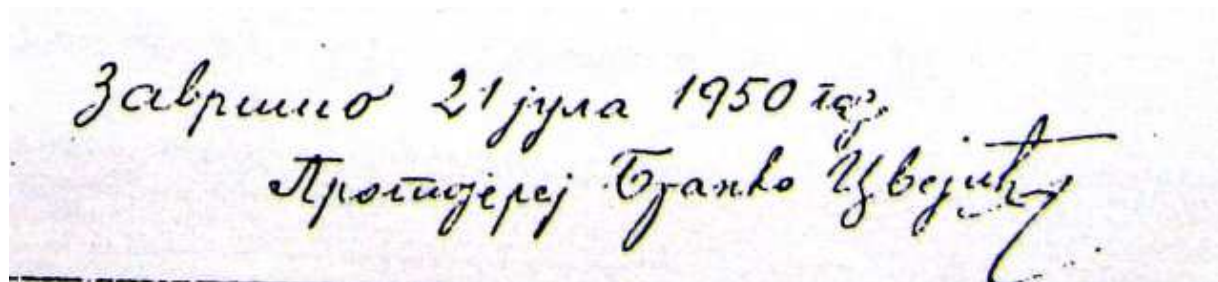 Завршио 21 јула 1950 год.
Протојереј Бранко Цвејић